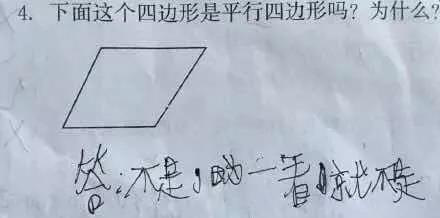 4. 下面这个四边形是平行四边形吗？为什么？
答：不是，瞄一看就不是